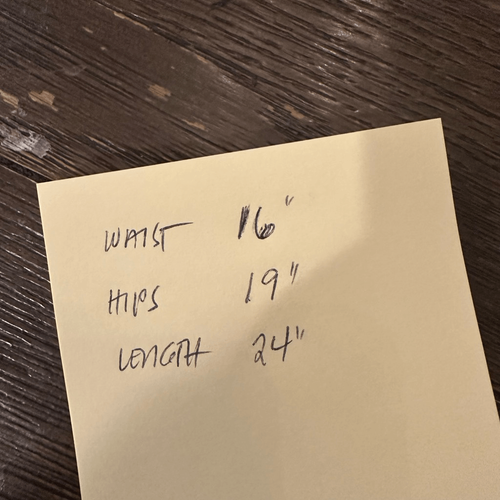 WAIST 16"
HIPS 19"
LENGTH 24"